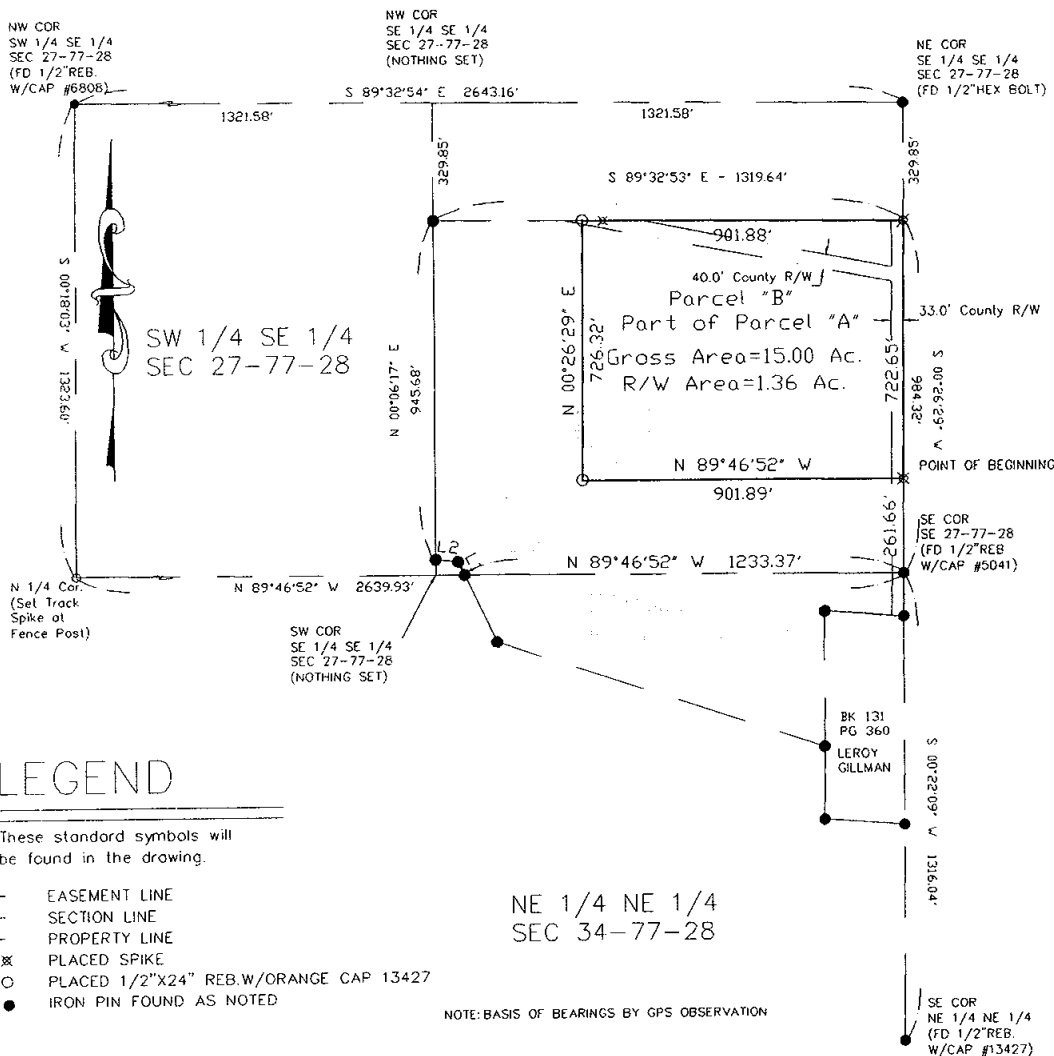 NW COR
SW 1/4 SE 1/4
SEC 27-77-28
(FD 1/2"REB.
W/CAP #6808)
NW COR
SE 1/4 SE 1/4
SEC 27-77-28
(NOTHING SET)
NE COR
SE 1/4 SE 1/4
SEC 27-77-28
(FD 1/2"HEX BOLT)
S 89°32'54" E 2643.16'
1321.58'
1321.58'
329.85'
329.85'
S 89°32'53" E - 1319.64'
901.88'
40.0' County R/W
Parcel "B"
Part of Parcel "A"
Gross Area=15.00 Ac.
R/W Area=1.36 Ac.
33.0' County R/W
S 00°18'03" W 1323.60'
SW 1/4 SE 1/4
SEC 27-77-28
N 00°06'17" E
945.68'
N 00°26'29" E
726.32'
722.65'
984.32'
S 00°26'29" W
N 89°46'52" W
901.89'
POINT OF BEGINNING
261.66'
SE COR
SE 27-77-28
(FD 1/2"REB
W/CAP #5041)
L2
N 89°46'52" W 1233.37'
N 1/4 Cor.
(Set Track
Spike at
Fence Post)
N 89°46'52" W 2639.93'
SW COR
SE 1/4 SE 1/4
SEC 27-77-28
(NOTHING SET)
BK 131
PG 360
LEROY
GILLMAN
S 00°22'09" W 1316.04'
LEGEND
These standard symbols will
be found in the drawing.
EASEMENT LINE
SECTION LINE
PROPERTY LINE
PLACED SPIKE
PLACED 1/2"X24" REB.W/ORANGE CAP 13427
IRON PIN FOUND AS NOTED
NE 1/4 NE 1/4
SEC 34-77-28
NOTE: BASIS OF BEARINGS BY GPS OBSERVATION
SE COR
NE 1/4 NE 1/4
(FD 1/2"REB.
W/CAP #13427)